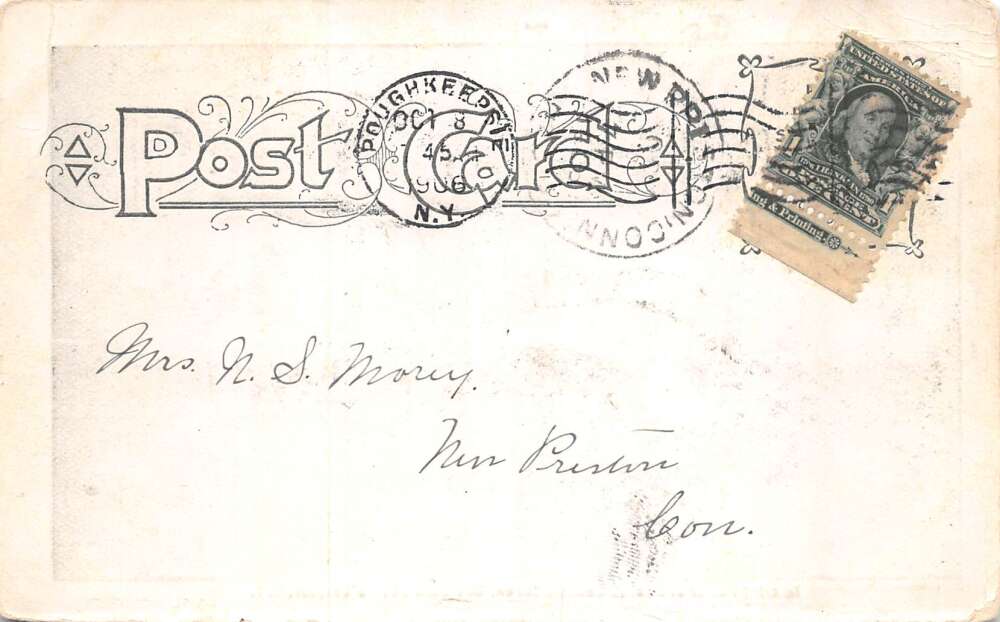 Post Card
POUGHKEEPSIE
OCT 8
1906
N.Y.
NEW PRE
CONN
UNITED STATES OF AMERICA
ng & Printing
Mrs. N. S. Morey.
New Preston
Con.